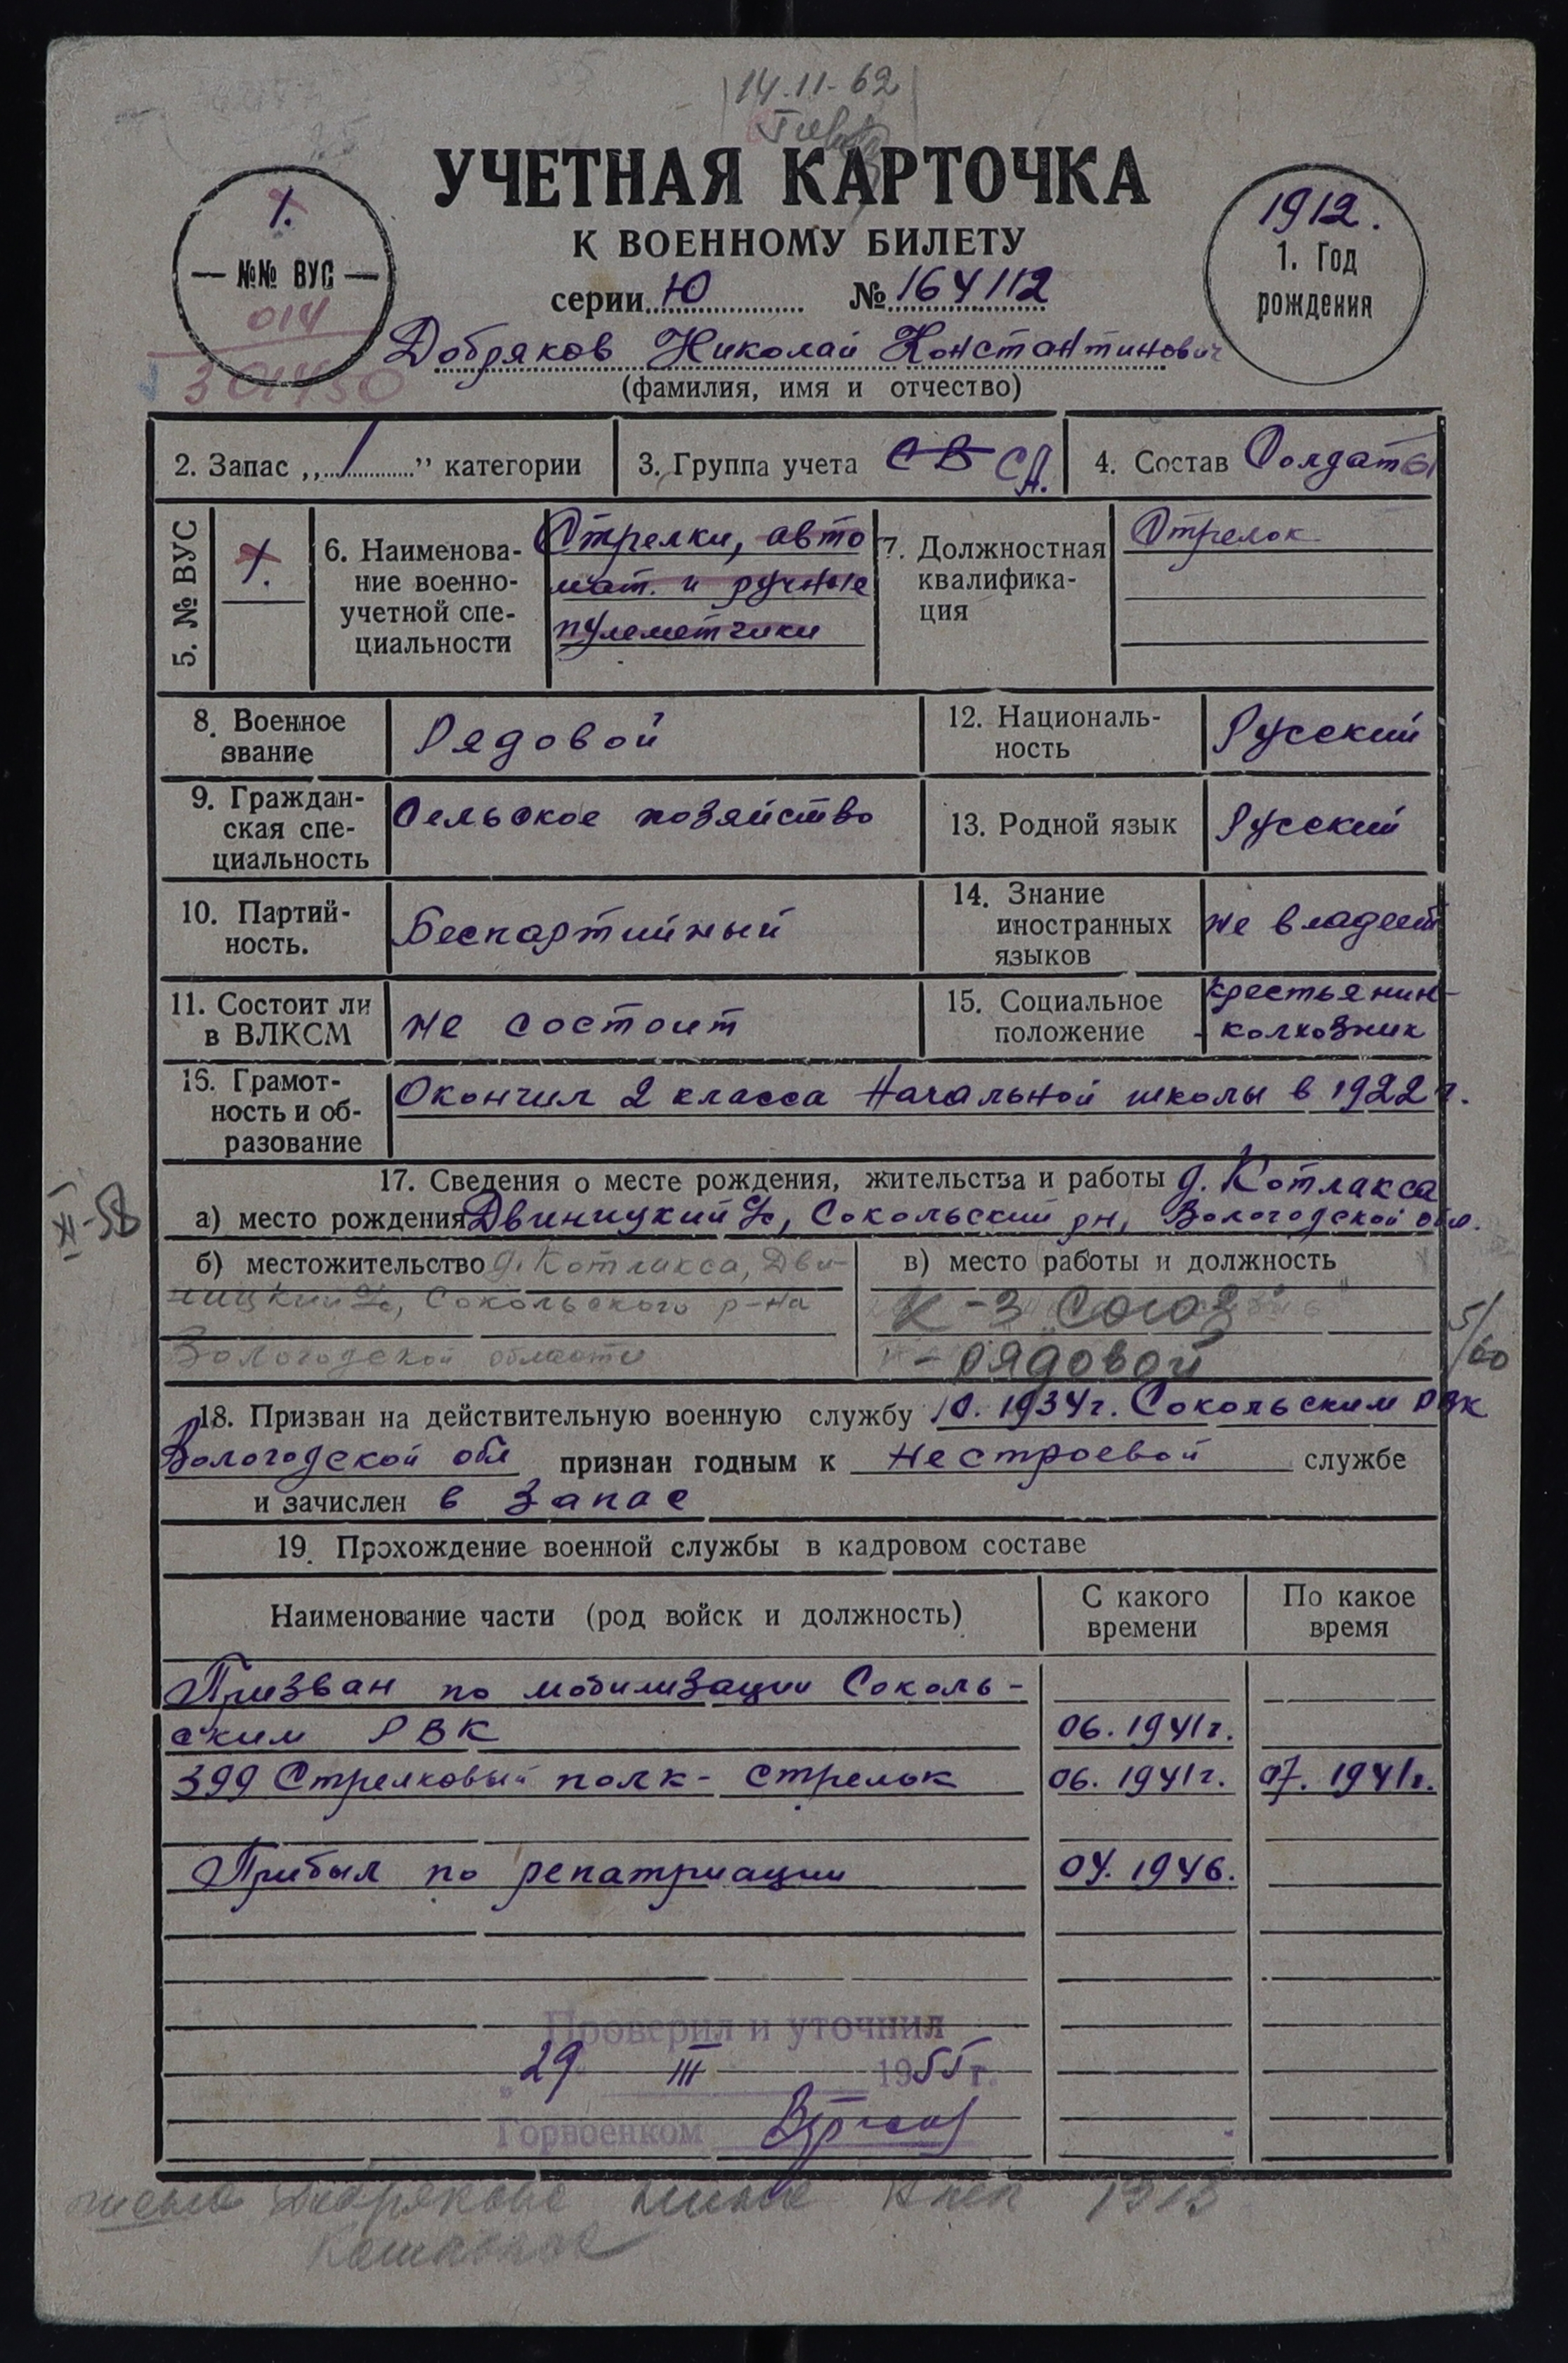 14.11-62
УЧЕТНАЯ КАРТОЧКА
К ВОЕННОМУ БИЛЕТУ
серии Ю № 164112
1.
— №№ ВУС —
014
301450
1912.
1. Год
рождения
Добряков Николай Константинович
(фамилия, имя и отчество)
2. Запас „ 1 ” категории
3. Группа учета СВ СА.
4. Состав Солдаты
5. № ВУС
1.
6. Наименова-
ние военно-
учетной спе-
циальности
Стрелки, авто
мат. и ручные
пулеметчики
7. Должностная
квалифика-
ция
Стрелок
8. Военное
звание
Рядовой
12. Националь-
ность
Русский
9. Граждан-
ская спе-
циальность
Сельское хозяйство
13. Родной язык
Русский
10. Партий-
ность.
Беспартийный
14. Знание
иностранных
языков
не владеет
11. Состоит ли
в ВЛКСМ
не состоит
15. Социальное
положение
крестьянин-
колхозник
16. Грамот-
ность и об-
разование
Окончил 2 класса начальной школы в 1922 г.
17. Сведения о месте рождения, жительства и работы д. Котлакса
а) место рождения Двиницкий с/с, Сокольский рн, Вологодской обл.
XI-58
б) местожительство д. Котлакса, Дви-
ницкий с/с, Сокольского р-на
Вологодской области
в) место работы и должность
К-з Союз
- рядовой
5/60
18. Призван на действительную военную службу 10. 1934г. Сокольским РВК
Вологодской обл признан годным к нестроевой службе
и зачислен в запас
19. Прохождение военной службы в кадровом составе
Наименование части (род войск и должность)
С какого
времени
По какое
время
Призван по мобилизации Соколь-
ским РВК 06. 1941г.
399 Стрелковый полк - стрелок 06. 1941г. 07. 1941г.
Прибыл по репатриации 04. 1946.
Проверил и уточнил
„29 III 1955 г.
Горвоенком
Добрякова 1913